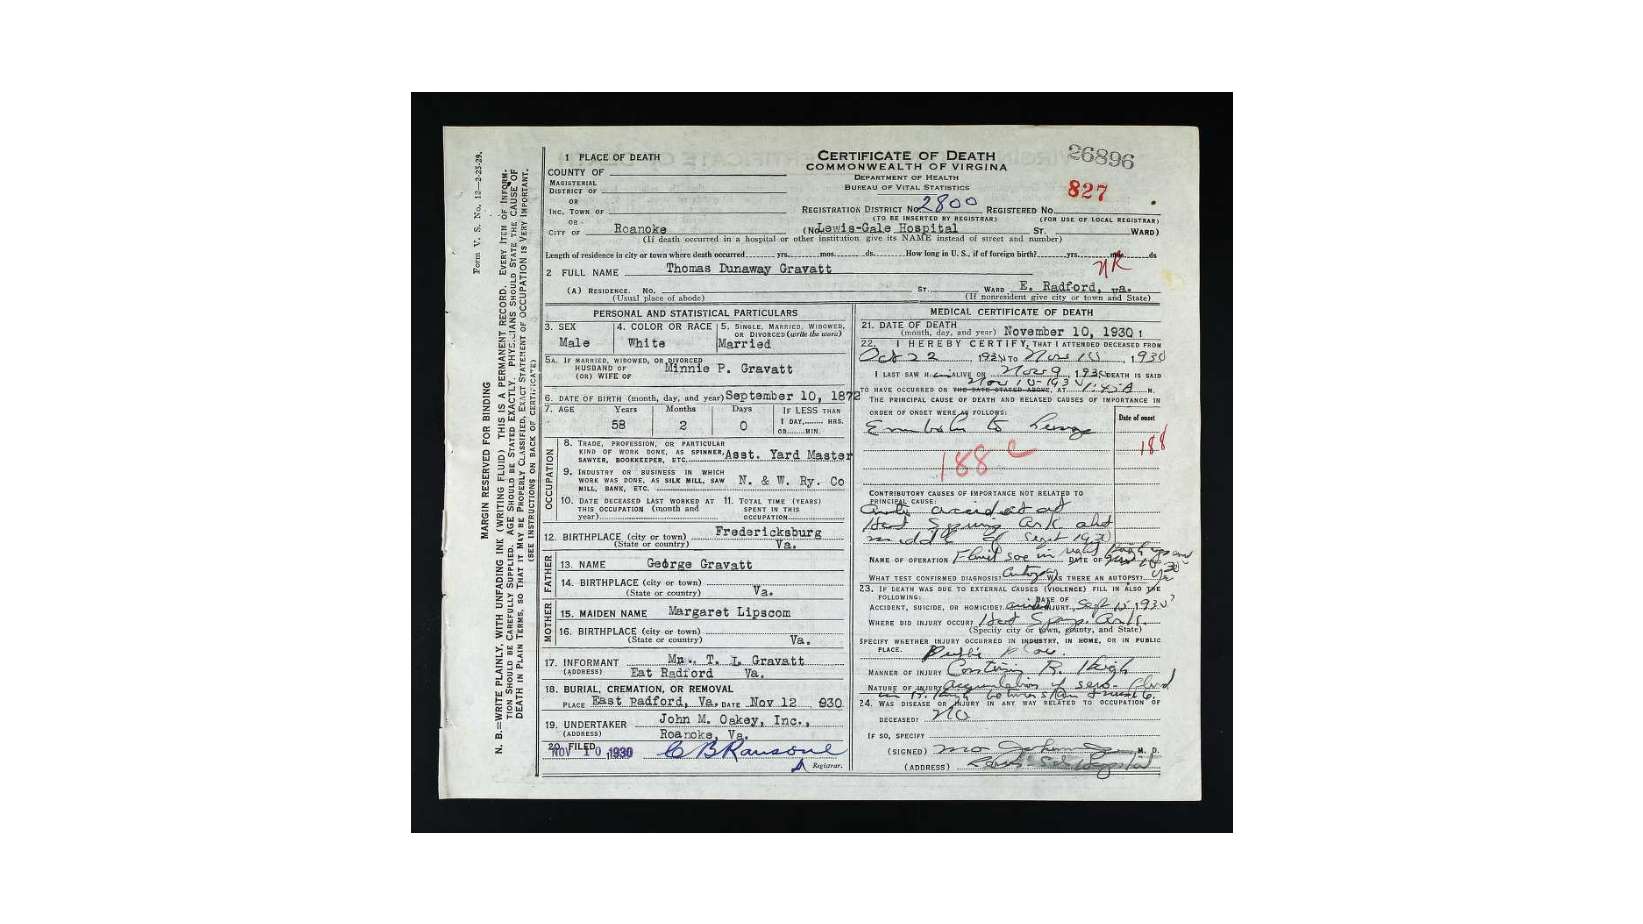 Form V. S. No. 12—2-25-29.
MARGIN RESERVED FOR BINDING
N. B.—WRITE PLAINLY, WITH UNFADING INK (WRITING FLUID) THIS IS A PERMANENT RECORD. EVERY ITEM OF INFORM-
TION SHOULD BE CAREFULLY SUPPLIED. AGE SHOULD BE STATED EXACTLY. PHYSICIANS SHOULD STATE THE CAUSE OF
DEATH IN PLAIN TERMS, SO THAT IT MAY BE PROPERLY CLASSIFIED. EXACT STATEMENT OF OCCUPATION IS VERY IMPORTANT.
(SEE INSTRUCTIONS ON BACK OF CERTIFICATE)
1 PLACE OF DEATH
COUNTY OF
MAGISTERIAL
DISTRICT OF
OR
INC. TOWN OF
OR
CITY OF Roanoke
CERTIFICATE OF DEATH
COMMONWEALTH OF VIRGINA
DEPARTMENT OF HEALTH
BUREAU OF VITAL STATISTICS
26896
827
REGISTRATION DISTRICT No. 2800 REGISTERED No.
(TO BE INSERTED BY REGISTRAR) (FOR USE OF LOCAL REGISTRAR)
(No Lewis-Gale Hospital ST. WARD)
(If death occurred in a hospital or other institution give its NAME instead of street and number)
Length of residence in city or town where death occurred yrs. mos. ds. How long in U. S., if of foreign birth? yrs. mos. ds
2 FULL NAME Thomas Dunaway Gravatt
NR
(A) RESIDENCE. No. ST. WARD E. Radford, va.
(Usual place of abode) (If nonresident give city or town and State)
PERSONAL AND STATISTICAL PARTICULARS
3. SEX 4. COLOR OR RACE 5. SINGLE, MARRIED, WIDOWED,
OR DIVORCED (write the word)
Male White Married
5A. IF MARRIED, WIDOWED, OR DIVORCED
HUSBAND OF
(OR) WIFE OF Minnie P. Gravatt
6. DATE OF BIRTH (month, day, and year) September 10, 1872
7. AGE Years Months Days IF LESS THAN
1 DAY, HRS.
OR MIN.
58 2 0
OCCUPATION
8. TRADE, PROFESSION, OR PARTICULAR
KIND OF WORK DONE, AS SPINNER,
SAWYER, BOOKKEEPER, ETC. Asst. Yard Master
9. INDUSTRY OR BUSINESS IN WHICH
WORK WAS DONE, AS SILK MILL, SAW
MILL, BANK, ETC. N. & W. Ry. Co
10. DATE DECEASED LAST WORKED AT
THIS OCCUPATION (month and
year)
11. TOTAL TIME (YEARS)
SPENT IN THIS
OCCUPATION
12. BIRTHPLACE (city or town) Fredericksburg
(State or country) Va.
FATHER
13. NAME George Gravatt
14. BIRTHPLACE (city or town)
(State or country) Va.
MOTHER
15. MAIDEN NAME Margaret Lipscom
16. BIRTHPLACE (city or town)
(State or country) Va.
17. INFORMANT T. L Gravatt
(ADDRESS) Eat Radford Va.
18. BURIAL, CREMATION, OR REMOVAL
PLACE East Radford, Va. DATE Nov 12 930
19. UNDERTAKER John M. Oakey, Inc.,
(ADDRESS) Roanoke, Va.
20. FILED NOV 10 1930 C B Ransone
Registrar.
MEDICAL CERTIFICATE OF DEATH
21. DATE OF DEATH
(month, day, and year) November 10, 1930
22. I HEREBY CERTIFY, THAT I ATTENDED DECEASED FROM
Oct 22 1930 TO Nov 10 1930
I LAST SAW H ALIVE ON Nov 9 1930 DEATH IS SAID
TO HAVE OCCURRED ON THE DATE STATED ABOVE, AT 1:45 A M.
Nov 10-1930
THE PRINCIPAL CAUSE OF DEATH AND RELATED CAUSES OF IMPORTANCE IN
ORDER OF ONSET WERE AS FOLLOWS:
Date of onset
to Lungs
188
188 c
CONTRIBUTORY CAUSES OF IMPORTANCE NOT RELATED TO
PRINCIPAL CAUSE:
Auto accident at
Hot Springs Ark abt
middle of Sept 1930
NAME OF OPERATION DATE OF
WHAT TEST CONFIRMED DIAGNOSIS? Autopsy WAS THERE AN AUTOPSY? Yes
23. IF DEATH WAS DUE TO EXTERNAL CAUSES (VIOLENCE) FILL IN ALSO THE
FOLLOWING:
ACCIDENT, SUICIDE, OR HOMICIDE? DATE OF INJURY Sept 15 1930?
WHERE DID INJURY OCCUR? Hot Springs. Ark.
(Specify city or town, county, and State)
SPECIFY WHETHER INJURY OCCURRED IN INDUSTRY, IN HOME, OR IN PUBLIC
PLACE. Public place.
MANNER OF INJURY R. thigh
NATURE OF INJURY of sero-fluid
24. WAS DISEASE OR INJURY IN ANY WAY RELATED TO OCCUPATION OF
DECEASED? No
IF SO, SPECIFY
(SIGNED) M. D.
(ADDRESS) Hospital